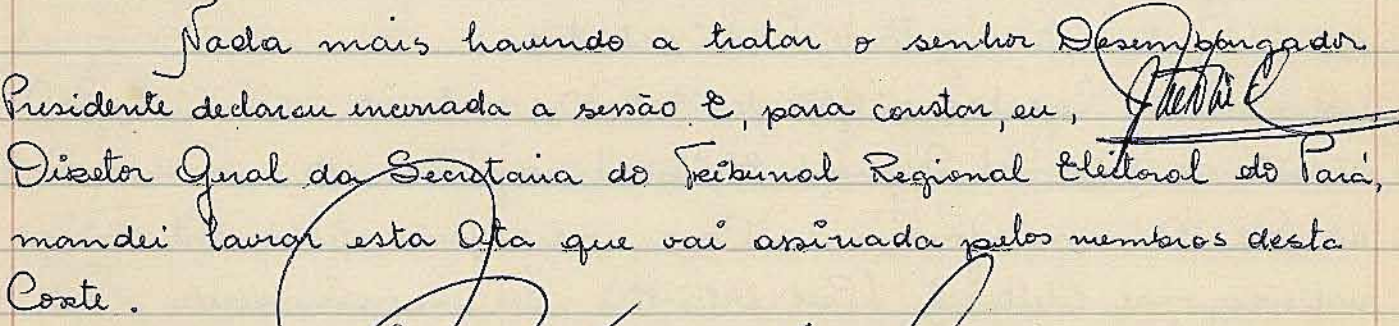 Nada mais havendo a tratar o senhor Desembargador
Presidente declarou encerrada a sessão E, para constar, eu,
Diretor Geral da Secretaria do Tribunal Regional Eleitoral do Pará,
mandei lavrar esta Ata que vai assinada pelos membros desta
Corte.